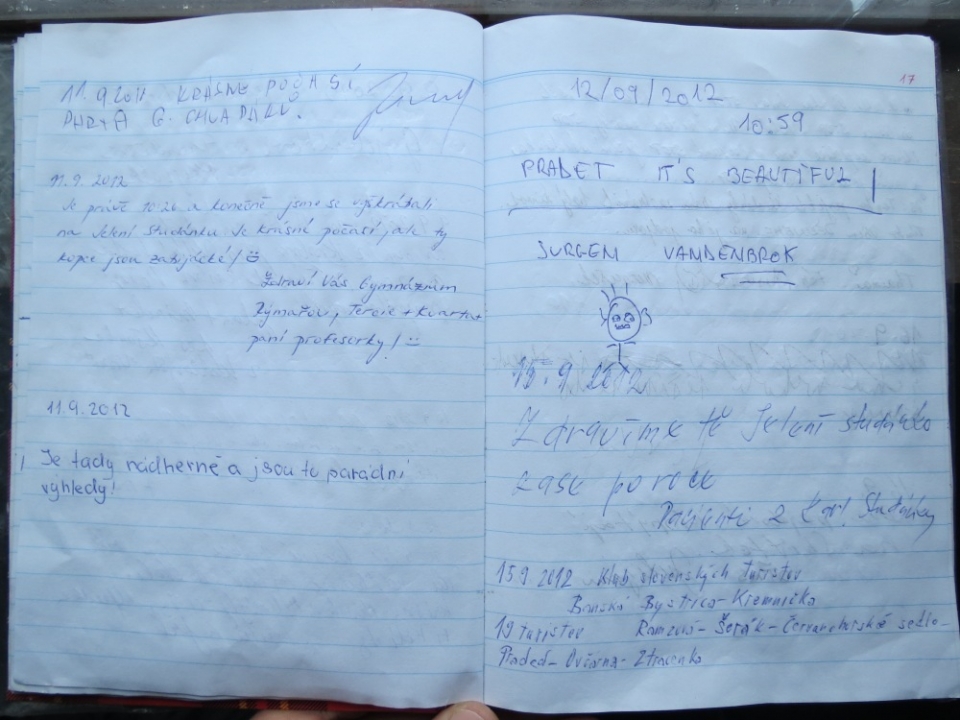 11.9 2011 KRÁSNE POČASÍ
PARTA G. CHUADÁKŮ.
11.9.2012
Je právě 10:26 a konečně jsme se vyškrábali
na Jelení studánku. Je krásné počasí, ale ty
kopce jsou zabijácké!
Zdraví Vás Gymnázium
Rýmařov, Tercie + kvarta +
paní profesorky!
11.9.2012
Je tady nádherně a jsou tu parádní
výhledy!
17
12/09/2012
10:59
PRADET IT'S BEAUTIFUL!
JURGEN VANDENBROK
15.9 2012
Zdravíme tě Jelení studánko
zase po roce
Pacienti z Kar. Studánky
15.9 2012 Klub slovenských turistov
Banská Bystrica - Kremnička
19 turistov Ramzová - Šerák - Červenohorské sedlo -
Praděd - Ovčárna - Ztracenka